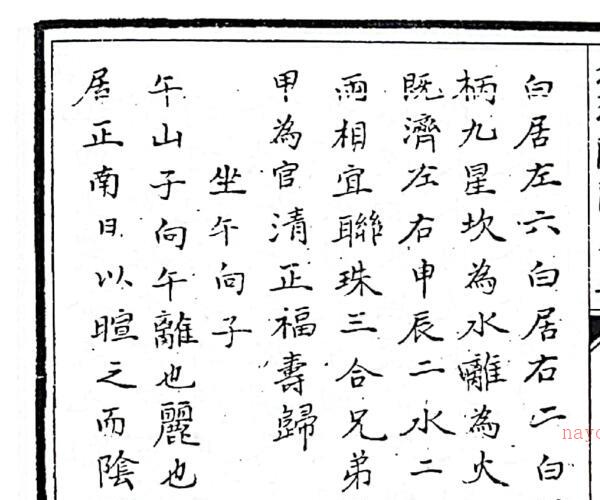 白居左六白居右二白
柄九星坎為水離為火
既濟左右申辰二水二
兩相宜聯珠三合兄弟
甲為官清正福壽歸
坐午向子
午山子向午離也麗也
居正南日以暄之而陰
nayo